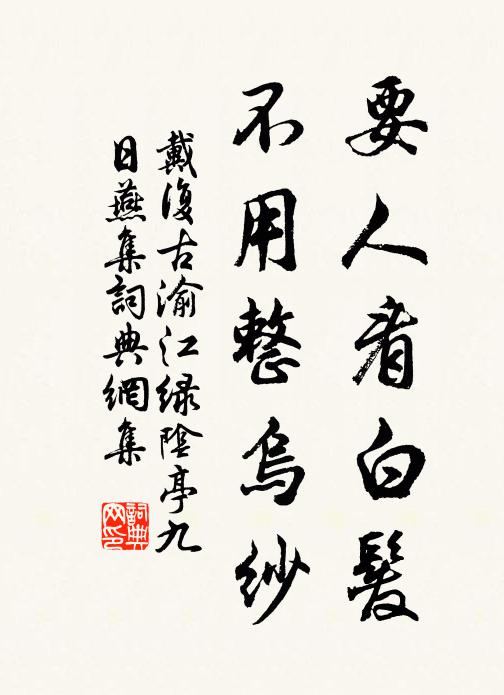 要人看白髮
不用整烏紗
戴復古渝江綠陰亭九
日燕集詞典網集
詞典
网印